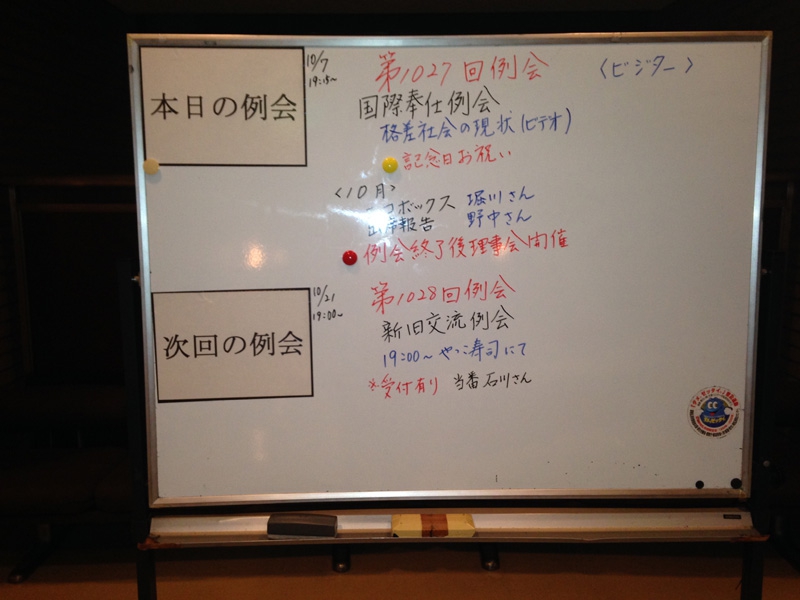 本日の例会
10/7
19:15~
第1027回例会
〈ビジター〉
国際奉仕例会
格差社会の現状(ビデオ)
記念日お祝い
〈10月〉
ニコボックス 堀川さん
出席報告 野中さん
例会終了後理事会開催
次回の例会
10/21
19:00~
第1028回例会
新旧交流例会
19:00~やっこ寿司にて
※受付有り 当番石川さん